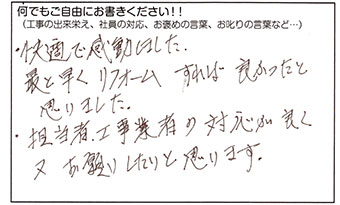 何でもご自由にお書きください!!
(工事の出来栄え、社員の対応、お褒めの言葉、お叱りの言葉など…)
・快適で感動しました。
最と早くリフォームすれば良かったと
思いました。
・担当者、工事業者の対応が良く
又お願いしたいと思います。